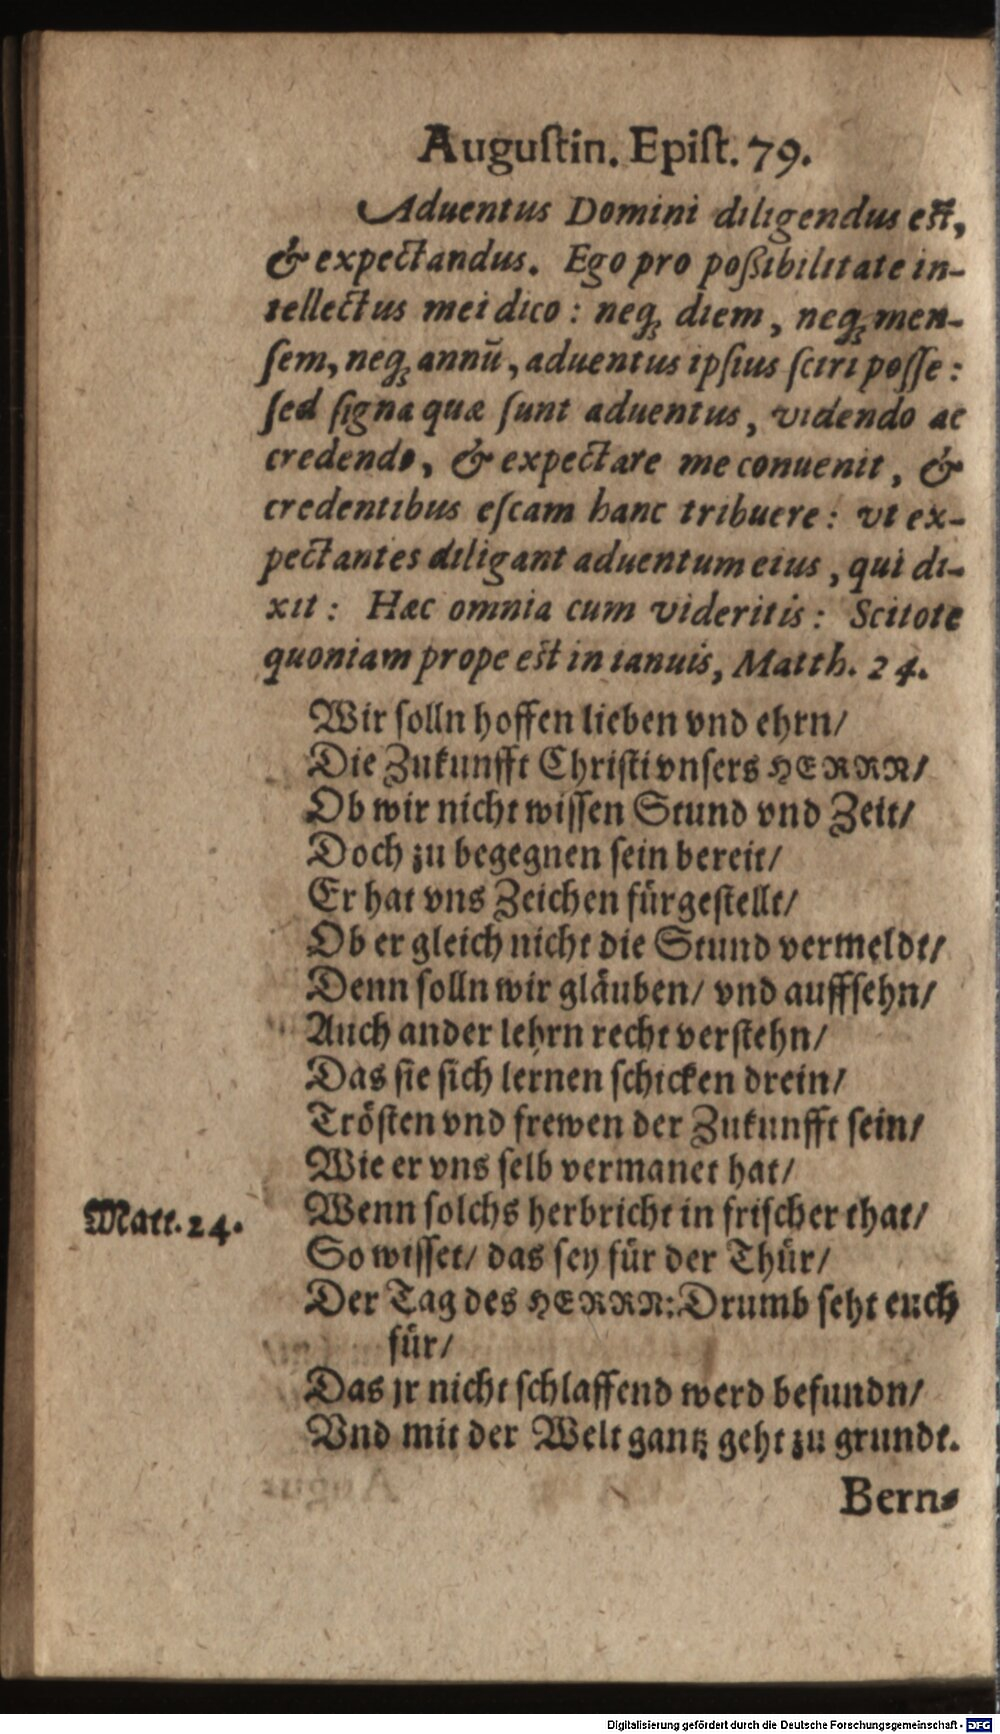 Auguſtin. Epiſt. 79.
Aduentus Domini diligendus eſt,
& expectandus. Ego pro poßibilitate in-
tellectus mei dico: neq; diem, neq; men-
ſem, neq; annū, aduentus ipſius ſciri poſſe:
ſed ſigna quæ ſunt aduentus, videndo ac
credendo, & expectare me conuenit, &
credentibus eſcam hanc tribuere: vt ex-
pectantes diligant aduentum eius, qui di-
xit: Hæc omnia cum videritis: Scitote
quoniam prope eſt in ianuis, Matth. 24.
Wir ſolln hoffen lieben vnd ehrn/
Die Zukunfft Chriſti vnſers HERRN/
Ob wir nicht wiſſen Stund vnd Zeit/
Doch zu begegnen ſein bereit/
Er hat vns Zeichen fürgeſtellt/
Ob er gleich nicht die Stund vermeldt/
Denn ſolln wir gläuben/ vnd auffſehn/
Auch ander lehrn recht verſtehn/
Das ſie ſich lernen ſchicken drein/
Tröſten vnd frewen der Zukunfft ſein/
Wie er vns ſelb vermanet hat/
Matt. 24.
Wenn ſolchs herbricht in friſcher that/
So wiſſet/ das ſey für der Thür/
Der Tag des HERRN: Drumb ſeht euch
für/
Das jr nicht ſchlaffend werd befundn/
Vnd mit der Welt gantz geht zu grundt.
Bern-
Digitalisierung gefördert durch die Deutsche Forschungsgemeinschaft - DFG